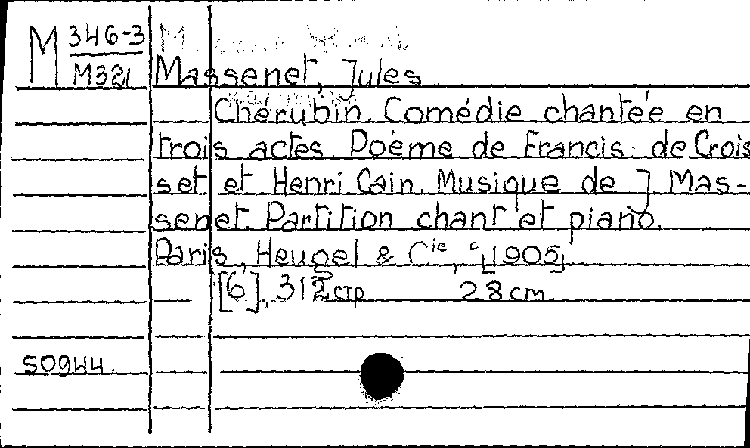 M 346-3
M321
Massenet, Jules
Chérubin. Comédie chantée en
trois actes Poème de Francis de Crois
set et Henri Cain. Musique de J Mas-
senet. Partition chant et piano.
Paris, Heugel & Cie, c[1905]
[6], 312 стр 28 cm
50944